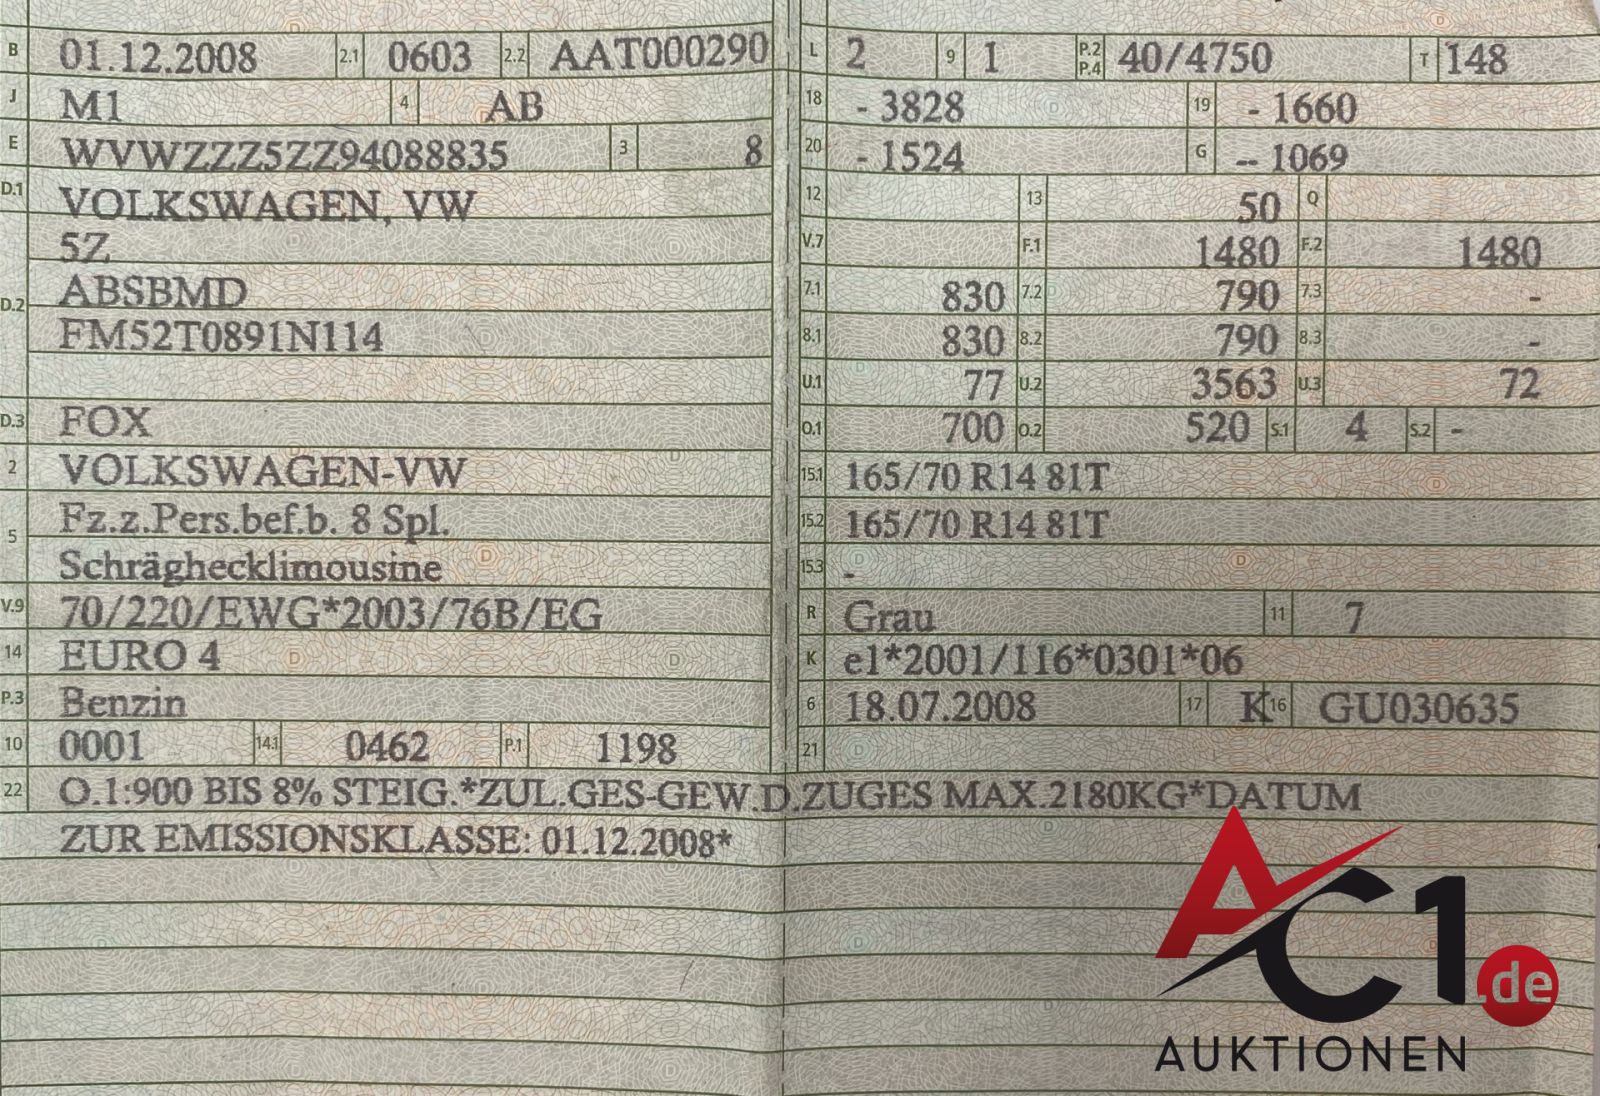 B 01.12.2008 2.1 0603 2.2 AAT000290
J M1 4 AB
E WVWZZZ5ZZ94088835 3 8
D.1 VOLKSWAGEN, VW
5Z
D.2 ABSBMD
FM52T0891N114
D.3 FOX
2 VOLKSWAGEN-VW
5 Fz.z.Pers.bef.b. 8 Spl.
Schräghecklimousine
V.9 70/220/EWG*2003/76B/EG
14 EURO 4
P.3 Benzin
10 0001 14.1 0462 P.1 1198
L 2 9 1 P.2 P.4 40/4750 T 148
18 - 3828 19 - 1660
20 - 1524 G -- 1069
12 13 50 Q
V.7 F.1 1480 F.2 1480
7.1 830 7.2 790 7.3 -
8.1 830 8.2 790 8.3 -
U.1 77 U.2 3563 U.3 72
O.1 700 O.2 520 S.1 4 S.2 -
15.1 165/70 R14 81T
15.2 165/70 R14 81T
15.3 -
R Grau 11 7
K e1*2001/116*0301*06
6 18.07.2008 17 K 16 GU030635
21
22 O.1:900 BIS 8% STEIG.*ZUL.GES-GEW.D.ZUGES MAX.2180KG*DATUM
ZUR EMISSIONSKLASSE: 01.12.2008*
AC1.de
AUKTIONEN